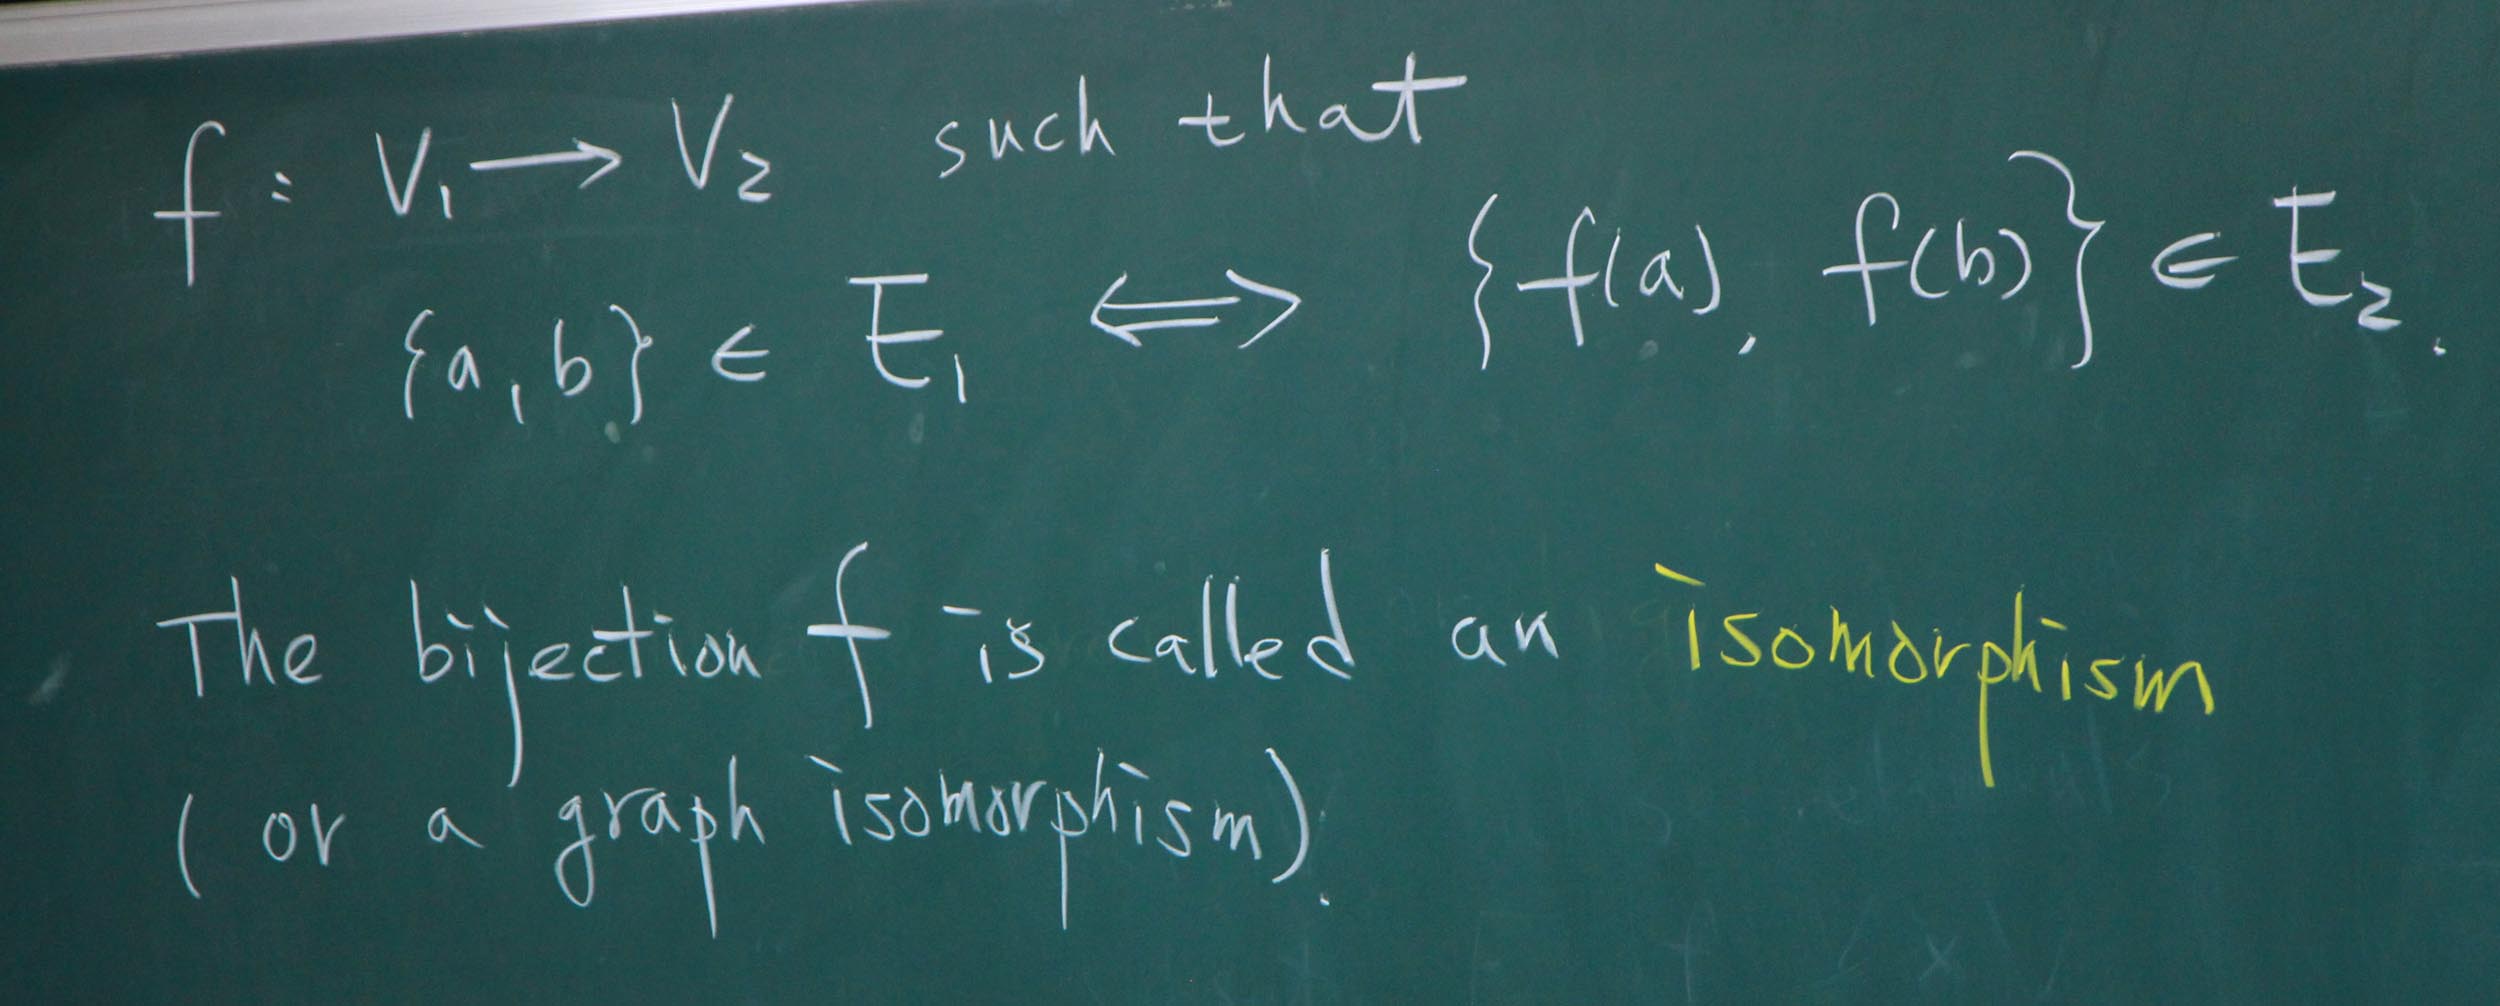 f: V₁ → V₂ such that
{a, b} ∈ E₁ ⟺ {f(a), f(b)} ∈ E₂.
The bijection f is called an isomorphism
(or a graph isomorphism).